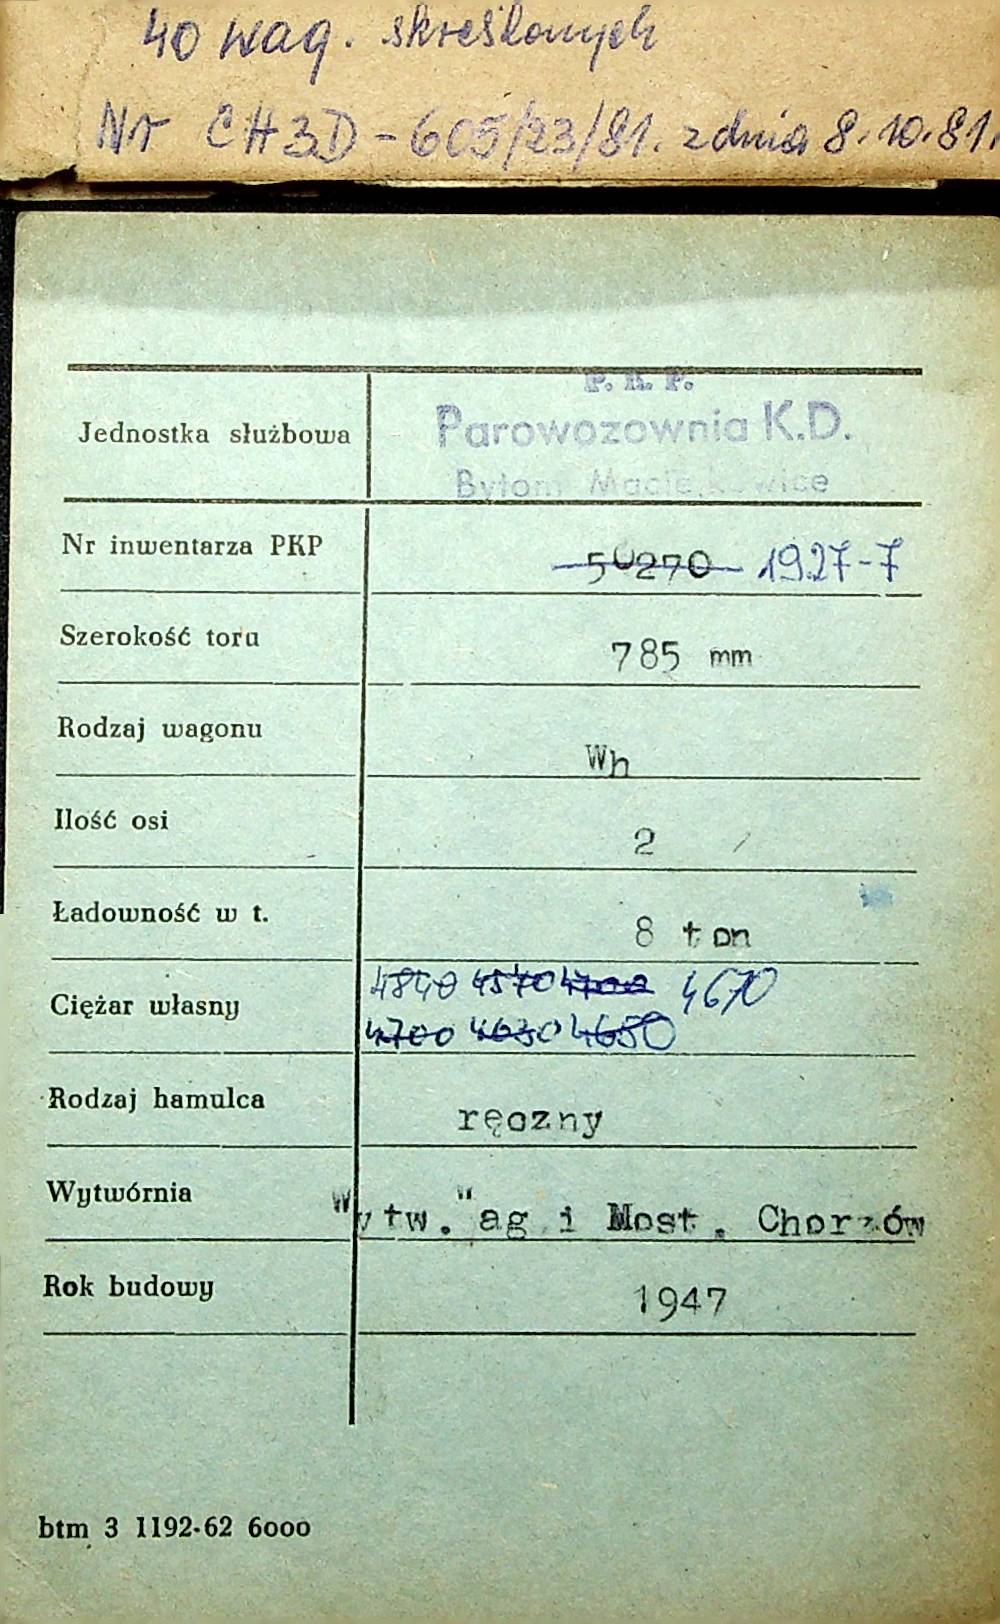 40 wag. skreślonych
Nr CH3D-605/23/81. z dnia 8.10.81.
P. K. P.
Jednostka służbowa Parowozownia K.D.
Bytom Maciejkowice
Nr inwentarza PKP 50270 1927-7
Szerokość toru 785 mm
Rodzaj wagonu Wh
Ilość osi 2
Ładowność w t. 8 ton
4840 4570 4700 4670
Ciężar własny
4700 4630 4650
Rodzaj hamulca ręczny
Wytwórnia Wytw."ag i Most. Chorzów
Rok budowy 1947
btm 3 1192-62 6000